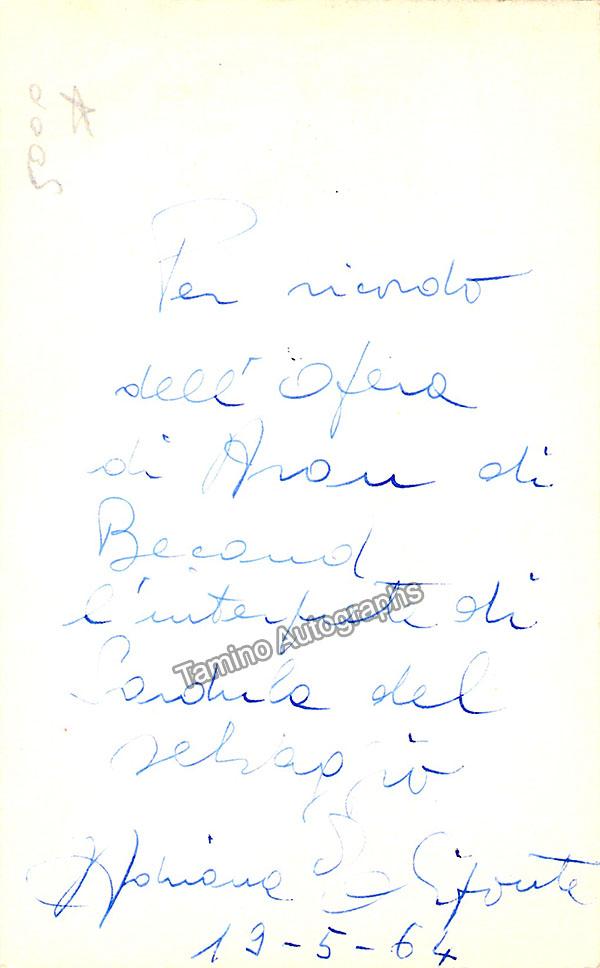 Per ricordo
dell'Opera
di Aran di
Becaud
l'interprete di
del
selvaggio
Adriana
19-5-64
Tamino Autographs